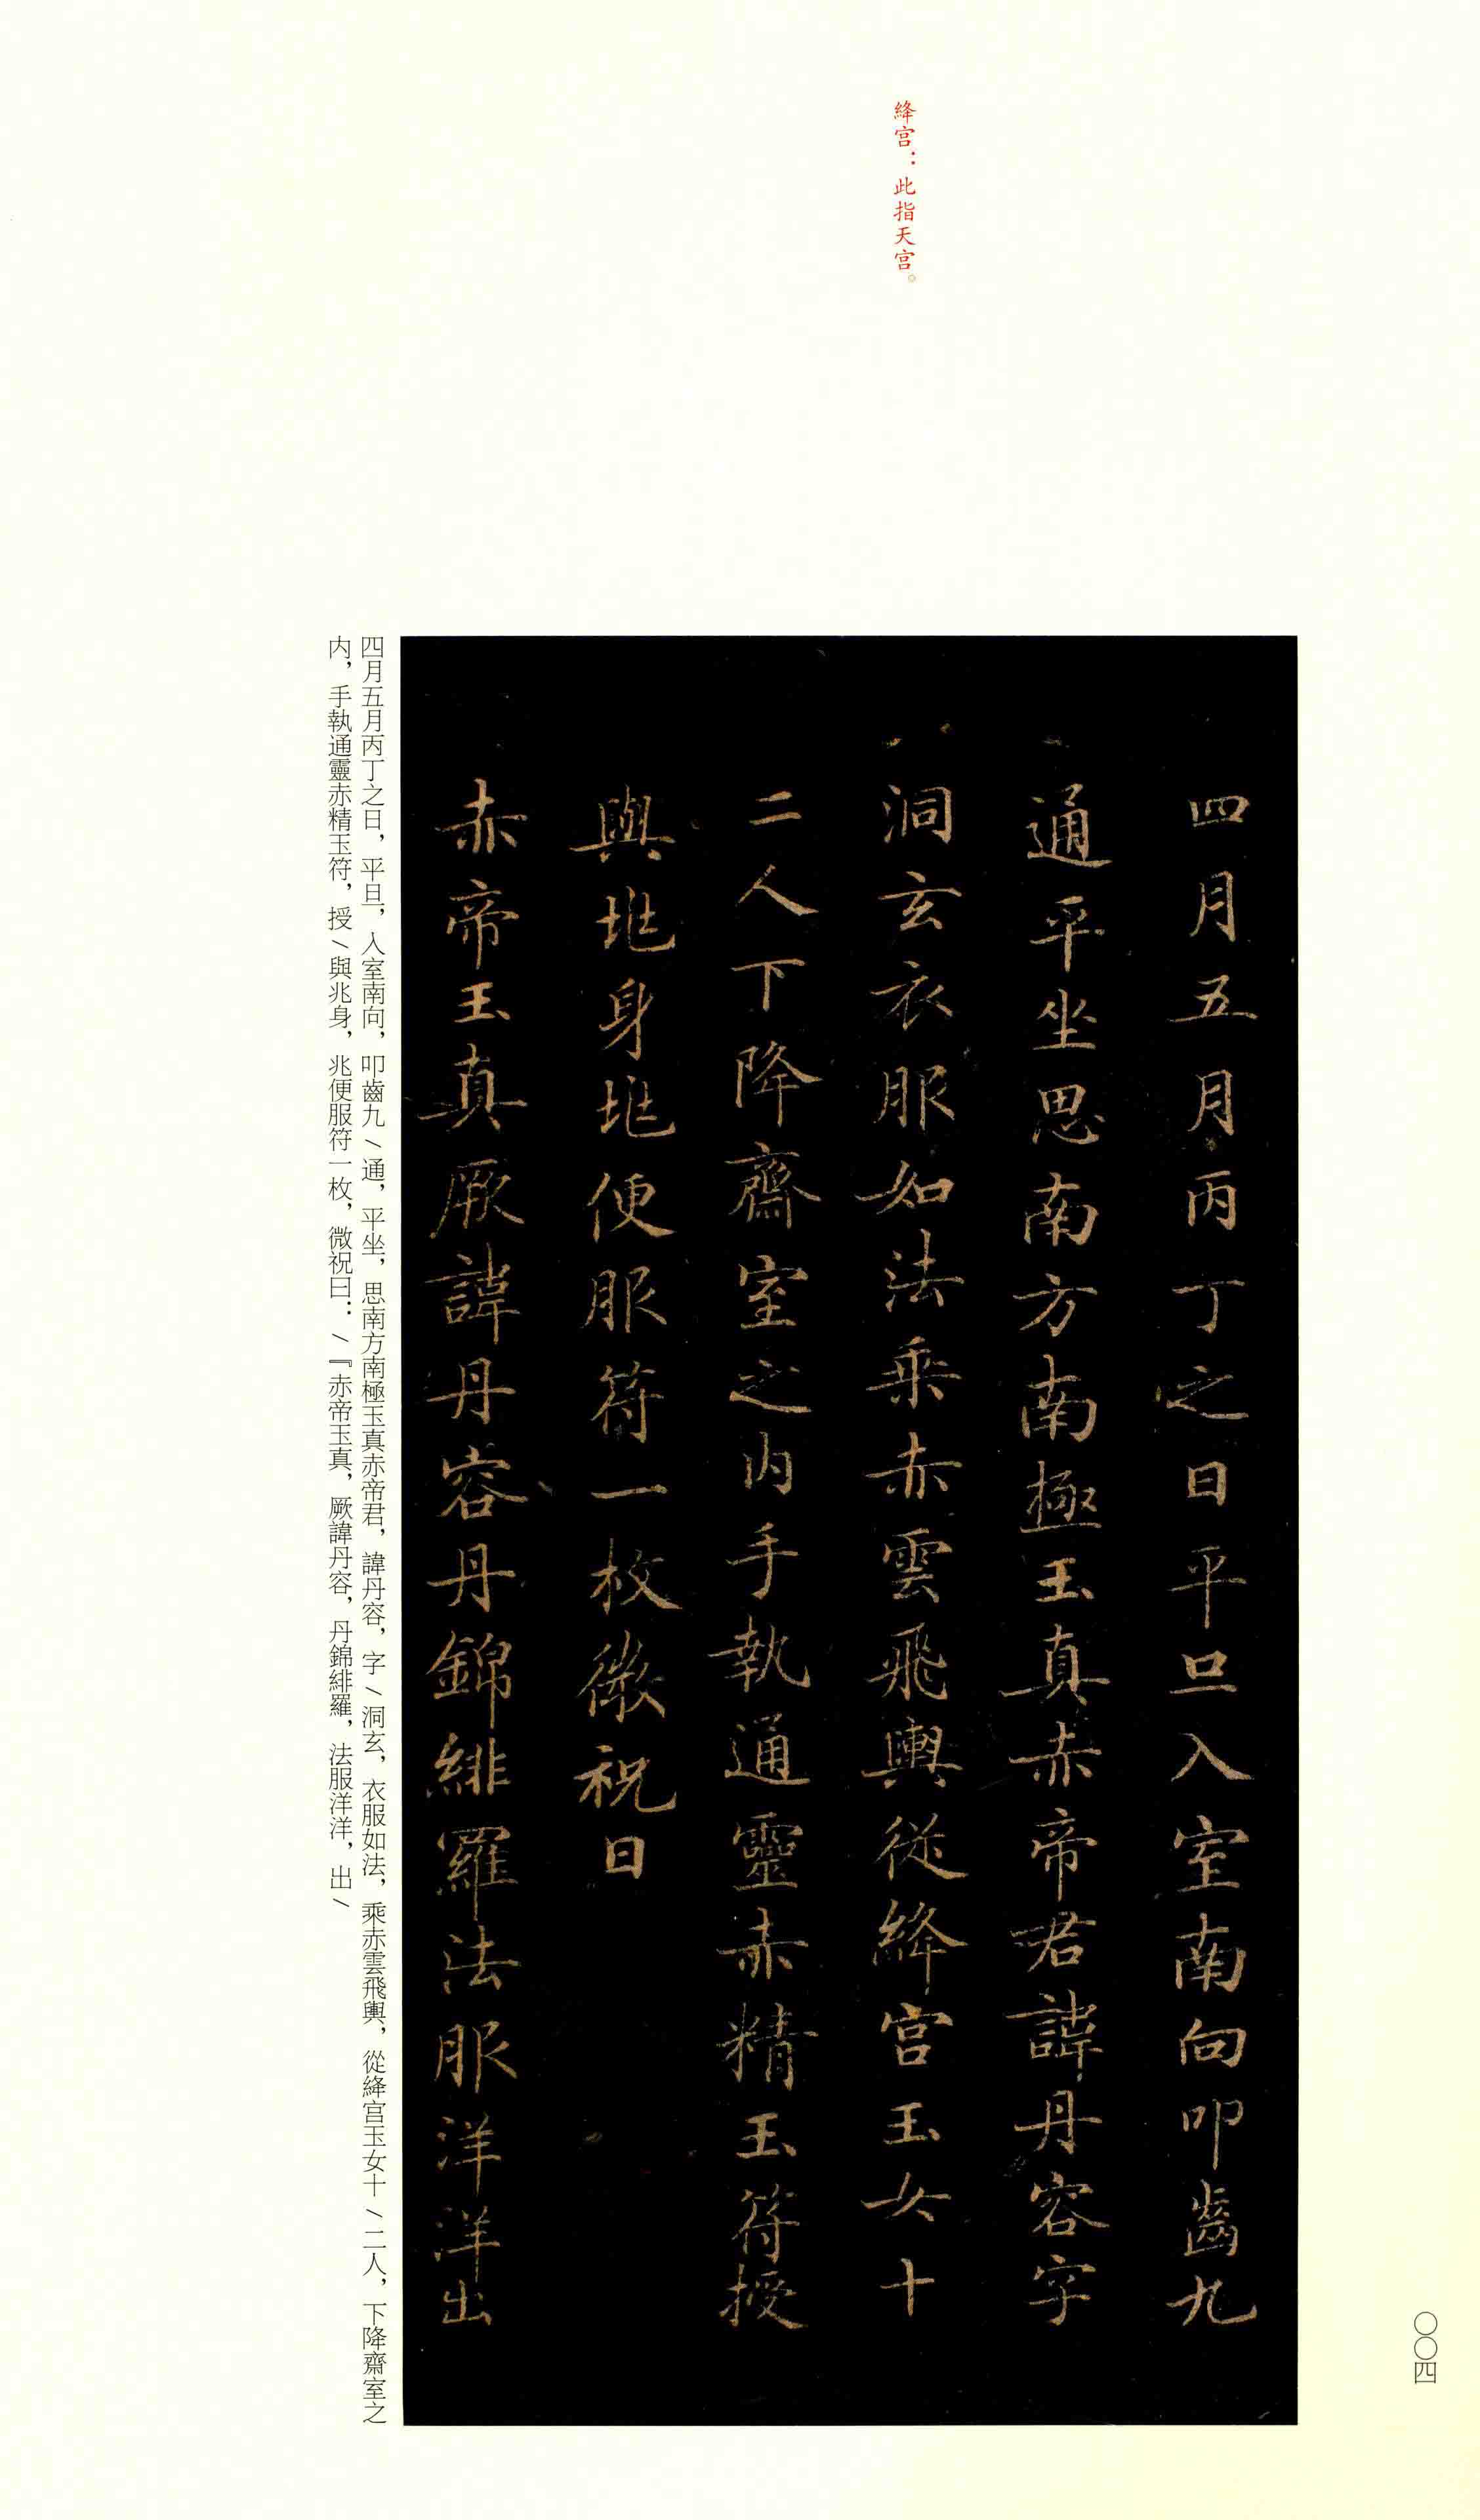 絳宫：此指天宫。
四月五月丙丁之日平旦入室南向叩齒九
通平坐思南方南極玉真赤帝君諱丹容字
洞玄衣服如法乘赤雲飛輿從絳宫玉女十
二人下降齋室之内手執通靈赤精玉符授
與兆身兆便服符一枚微祝曰
赤帝玉真厥諱丹容丹錦緋羅法服洋洋出
四月五月丙丁之日，平旦，入室南向，叩齒九／通，平坐，思南方南極玉真赤帝君，諱丹容，字／洞玄，衣服如法，乘赤雲飛輿，從絳宫玉女十／二人，下降齋室之
内，手執通靈赤精玉符，授／與兆身，兆便服符一枚，微祝曰：／『赤帝玉真，厥諱丹容，丹錦緋羅，法服洋洋，出／
〇〇四